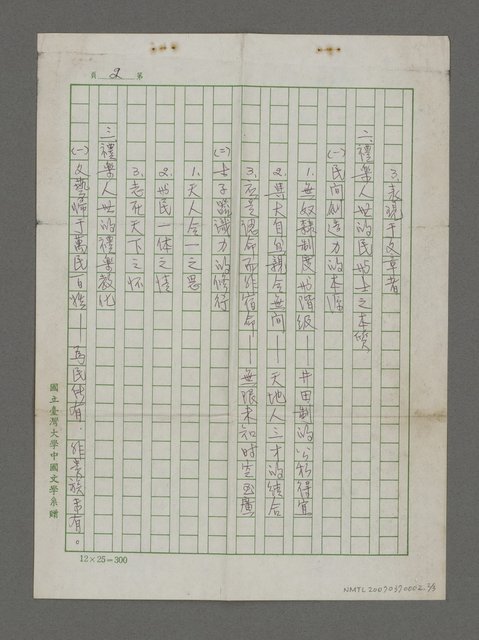 第 2 頁
3. 表現于文章者
二、禮樂人世的民與士之本質
(一)民間創造力的本源
1. 無奴隸制度與階級——井田制的公私得宜
2. 與大自然親合無間——天地人三才的結合
3. 知命而非宿命——無限未知時空
(二)士子 識力的修行
1. 天人合一之思
2. 與民一体之情
3. 志在天下之怀
三、禮樂人世的禮樂教化
(一)文藝歸于萬民百姓——為民所有，非貴族專有。
國立臺灣大學中國文學系贈
12×25=300
NMTL20070370002 2/3